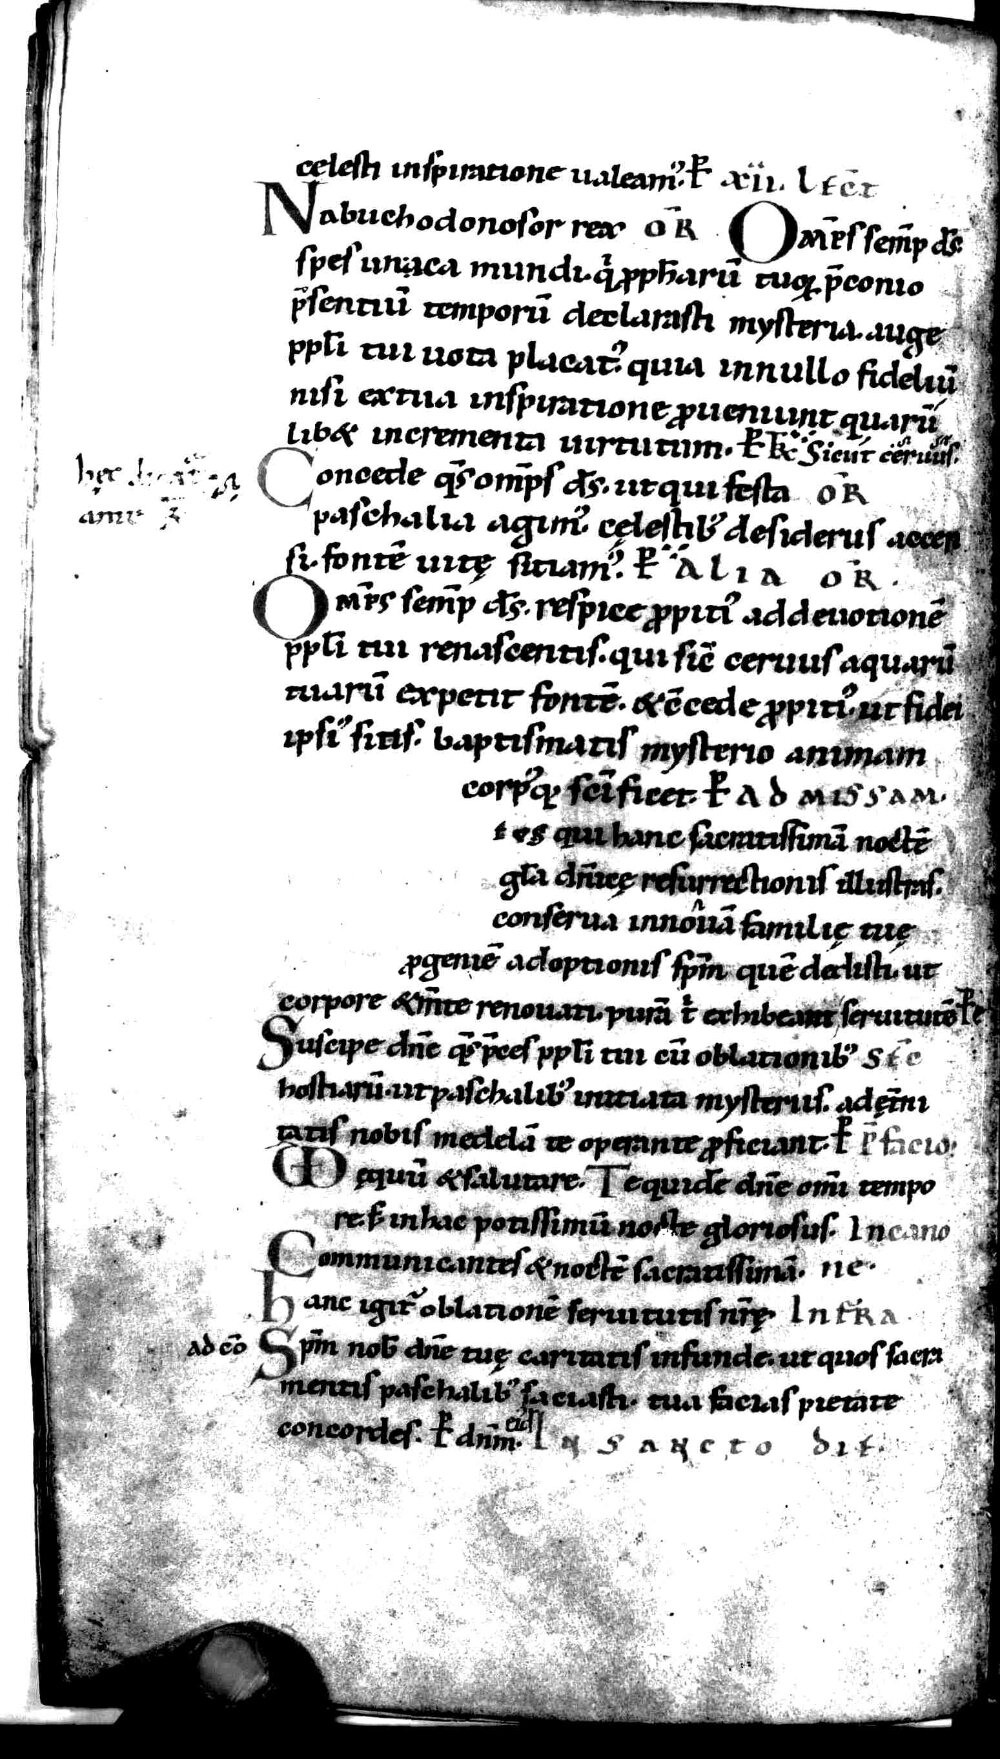 celesti inspiratione ualeam᷒. P̄ xii. Lect̄
Nabuchodonosor rex OR̄ Om̄ps semp̄ ds̄
spes unica mundi. qͥ ꝓph̄arū tuoꝝ p̄conio
p̄sentiū temporū declarasti mysteria. auge
ppli̅ tui uota placat᷒. quia innullo fideliū
nisi extua inspiratione ꝓueniunt quarū
lib& incrementa uirtutum. P̄ Sicut ceruus.
hęc
Concede qs̄ om̄ps ds̄. ut qui festa OR̄
paschalia agim᷒. cęlestib᷒ desideriis accen
si. fontē uitę sitiam᷒. P̄ ALIA OR̄.
Om̄ps semp̄ ds̄. respice ꝓpiti᷒ addeuotionē
ppli̅ tui renascentis. qui sic̄ ceruus aquarū
tuarū expetit fontē. &c̄cede ꝓpiti᷒. ut fidei
ipsi᷒ sitis. baptismatis mysterio animam
corp᷒q; sc̄ificet. P̄ AD MISSAM.
qui hanc sacratissimā noctē
gl̄a dn̄icę resurrectionis illustras.
conserua innouā familię tuę
ꝓgeniē adoptionis sp̄m quē dedisti. ut
corpore &m̄te renouati. purā t̄ exhibeant seruitutē P̄
Suscipe dn̄e qs̄ p̄ces ppli̅ tui cū oblationib᷒ Sēc
hostiarū. ut paschalib᷒ initiata mysteriis. ad ęt̄ni
tatis nobis medelā te operante ꝓficiant. P̄ P̄facio.
ęquū &salutare. Te quidē dn̄e om̄i tempo
re. s̄ inhac potissimū nocte gloriosus. Incano
Communicantes &noctē sacratissimā. ne.
hanc igit᷑ oblationē seruitutis nr̄ę. Infra
ad cō Sp̄m nob̄ dn̄e tuę caritatis infunde. ut quos sacra
mentis paschalib᷒ saciasti. tua facias pietate
concordes. P̄ dn̄m. eid̄ In sancto die.